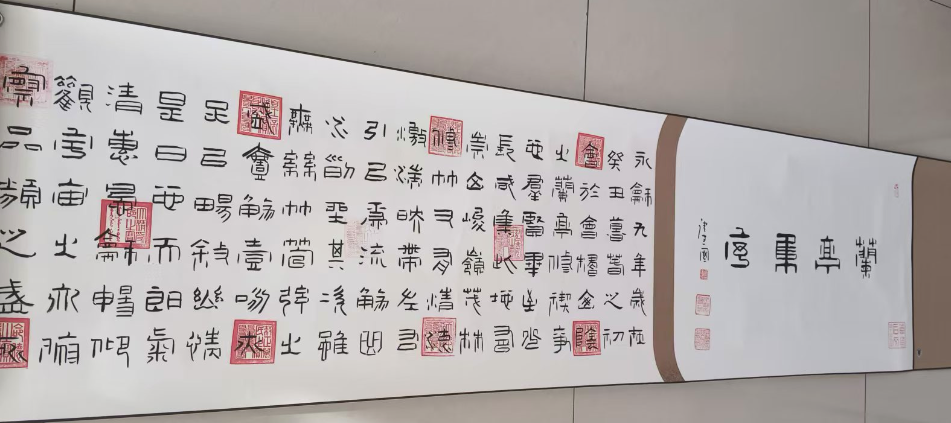 蘭亭集序
永龢九年歲在
癸丑暮春之初
會於會稽山陰
之蘭亭脩禊事
也羣賢畢至少
長咸集此地有
崇山峻嶺茂林
脩竹又有清流
激湍映帶左右
引以為流觴曲
水列坐其次雖
無絲竹管弦之
盛壹觴壹詠亦
足以暢敘幽情
是日也天朗氣
清惠風龢暢仰
觀宇宙之大俯
察品類之盛所